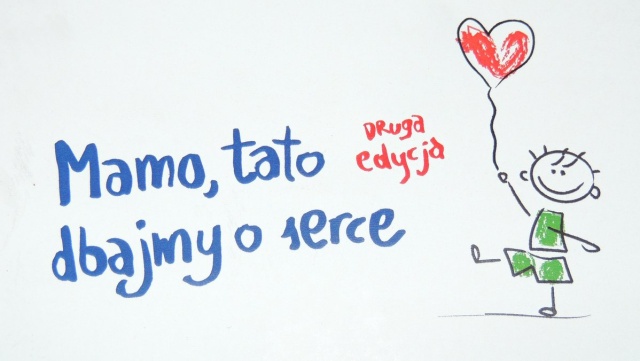 Mamo, tato
DRUGA
edycja
dbajmy o serce